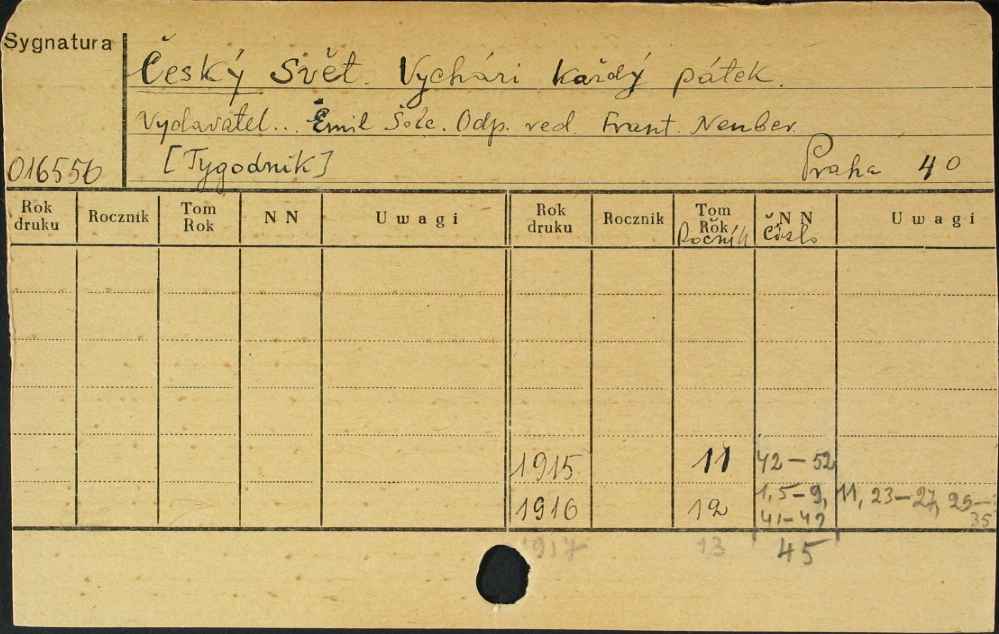 Sygnatura
Český Svět. Vychází každý pátek.
Vydavatel... Emil Šolc. Odp. red. Frant. Neuber.
016556 [Tygodnik] Praha 40
Rok druku Rocznik Tom Rok NN Uwagi Rok druku Rocznik Tom Rok Ročník NN Číslo Uwagi
1915 11 42-52
1916 12 1, 5-9, 11, 23-27, 29-
41-42 35
1917 13 45